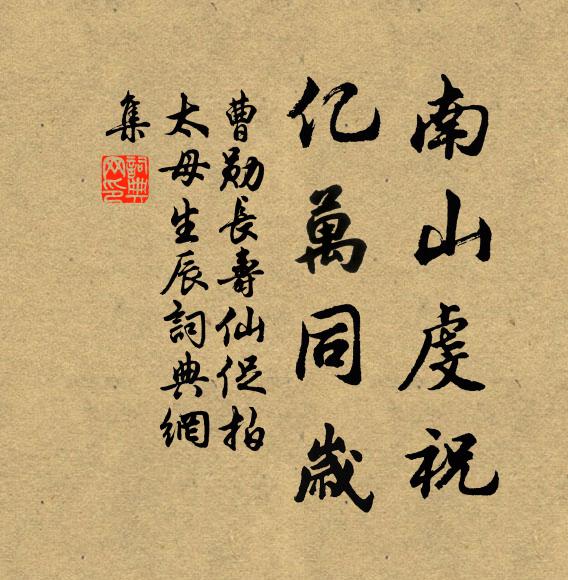 南山虔祝
亿萬同歲
曹勛長壽仙促拍
太母生辰詞典網
集
詞典網印